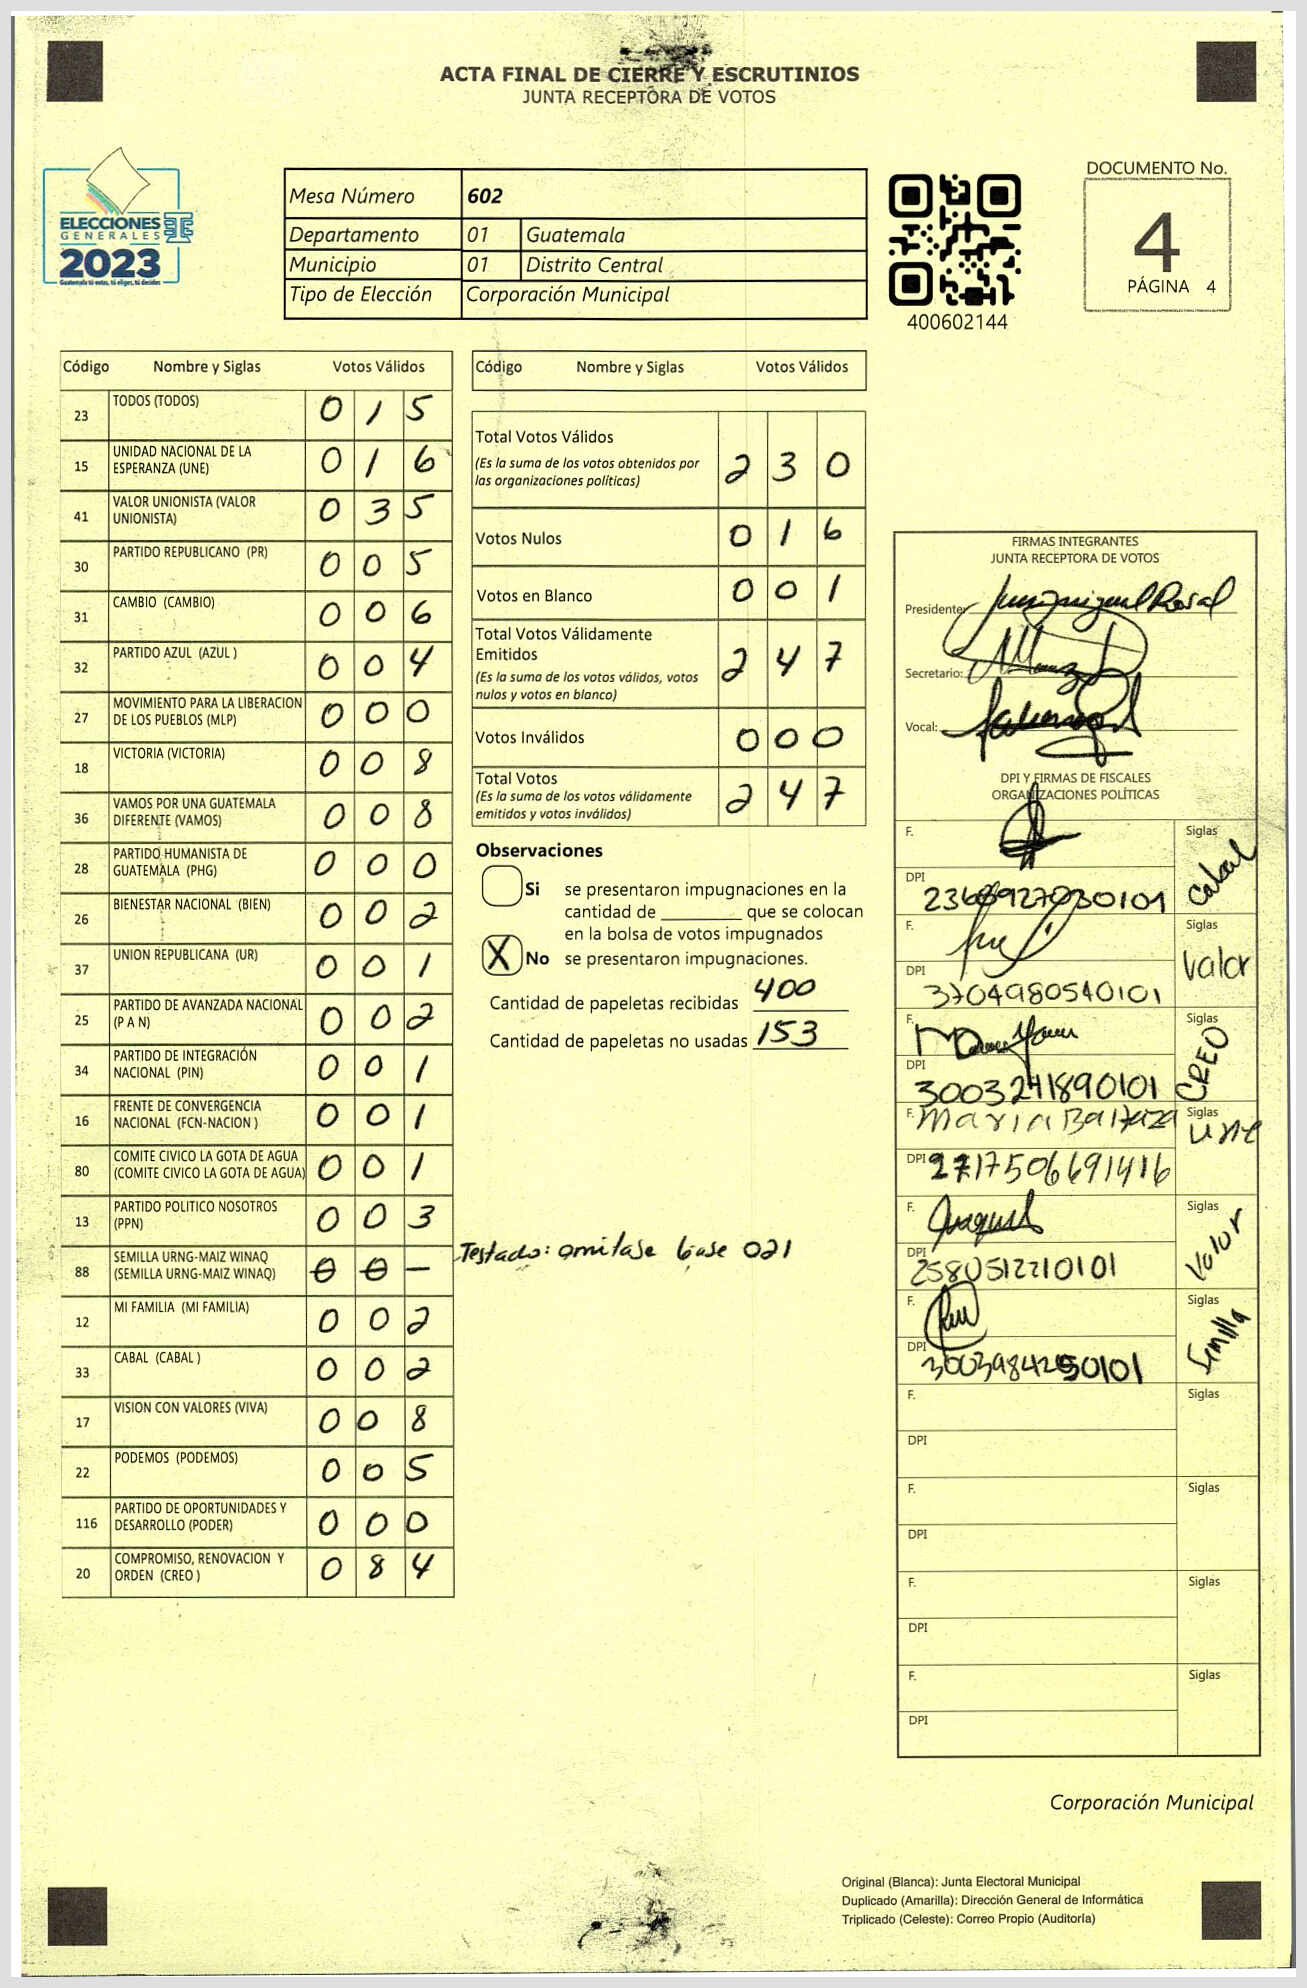 ACTA FINAL DE CIERRE Y ESCRUTINIOS
JUNTA RECEPTORA DE VOTOS
ELECCIONES
GENERALES
2023
Guatemala tú votas, tú eliges, tú decides
Mesa Número 602
Departamento 01 Guatemala
Municipio 01 Distrito Central
Tipo de Elección Corporación Municipal
400602144
DOCUMENTO No.
4
PÁGINA 4
Código Nombre y Siglas Votos Válidos
23 TODOS (TODOS) 0 1 5
15 UNIDAD NACIONAL DE LA ESPERANZA (UNE) 0 1 6
41 VALOR UNIONISTA (VALOR UNIONISTA) 0 3 5
30 PARTIDO REPUBLICANO (PR) 0 0 5
31 CAMBIO (CAMBIO) 0 0 6
32 PARTIDO AZUL (AZUL ) 0 0 4
27 MOVIMIENTO PARA LA LIBERACION DE LOS PUEBLOS (MLP) 0 0 0
18 VICTORIA (VICTORIA) 0 0 8
36 VAMOS POR UNA GUATEMALA DIFERENTE (VAMOS) 0 0 8
28 PARTIDO HUMANISTA DE GUATEMALA (PHG) 0 0 0
26 BIENESTAR NACIONAL (BIEN) 0 0 2
37 UNION REPUBLICANA (UR) 0 0 1
25 PARTIDO DE AVANZADA NACIONAL (P A N) 0 0 2
34 PARTIDO DE INTEGRACIÓN NACIONAL (PIN) 0 0 1
16 FRENTE DE CONVERGENCIA NACIONAL (FCN-NACION ) 0 0 1
80 COMITE CIVICO LA GOTA DE AGUA (COMITE CIVICO LA GOTA DE AGUA) 0 0 1
13 PARTIDO POLITICO NOSOTROS (PPN) 0 0 3
88 SEMILLA URNG-MAIZ WINAQ (SEMILLA URNG-MAIZ WINAQ) 0 0 - Testado: omitase base 021
12 MI FAMILIA (MI FAMILIA) 0 0 2
33 CABAL (CABAL ) 0 0 2
17 VISION CON VALORES (VIVA) 0 0 8
22 PODEMOS (PODEMOS) 0 0 5
116 PARTIDO DE OPORTUNIDADES Y DESARROLLO (PODER) 0 0 0
20 COMPROMISO, RENOVACION Y ORDEN (CREO ) 0 8 4
Código Nombre y Siglas Votos Válidos
Total Votos Válidos 2 3 0
(Es la suma de los votos obtenidos por
las organizaciones políticas)
Votos Nulos 0 1 6
Votos en Blanco 0 0 1
Total Votos Válidamente
Emitidos 2 4 7
(Es la suma de los votos válidos, votos
nulos y votos en blanco)
Votos Inválidos 0 0 0
Total Votos 2 4 7
(Es la suma de los votos válidamente
emitidos y votos inválidos)
Observaciones
Si se presentaron impugnaciones en la
cantidad de ________ que se colocan
en la bolsa de votos impugnados
X No se presentaron impugnaciones.
Cantidad de papeletas recibidas 400
Cantidad de papeletas no usadas 153
FIRMAS INTEGRANTES
JUNTA RECEPTORA DE VOTOS
Presidente:
Secretario:
Vocal:
DPI Y FIRMAS DE FISCALES
ORGANIZACIONES POLÍTICAS
F. Siglas Cabal
DPI
F. Siglas Valor
DPI 3704980540101
F. Siglas CREO
DPI 3003241890101
F. Maria Baltaza Siglas Une
DPI
F. Siglas Valor
DPI 2580512210101
F. Siglas Semilla
DPI
F. Siglas
DPI
F. Siglas
DPI
F. Siglas
DPI
F. Siglas
DPI
Corporación Municipal
Original (Blanca): Junta Electoral Municipal
Duplicado (Amarilla): Dirección General de Informática
Triplicado (Celeste): Correo Propio (Auditoría)